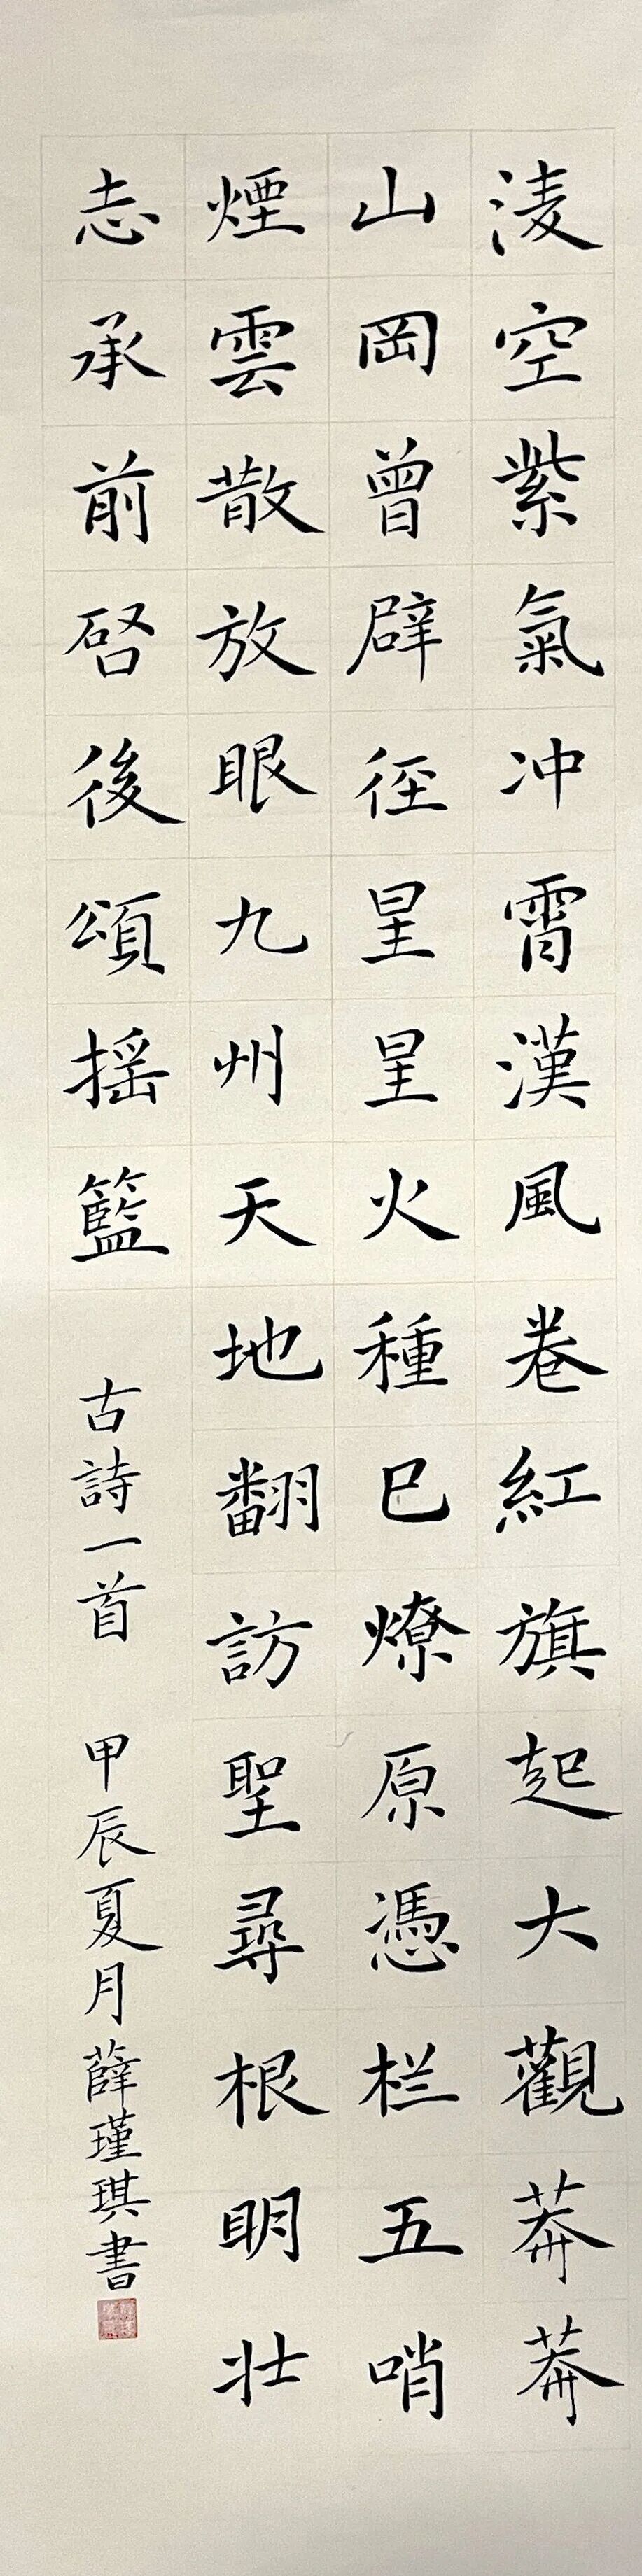 淩空紫氣冲霄漢風卷紅旗起大觀莽莽
山岡曾辟徑星星火種已燎原憑栏五哨
煙雲散放眼九州天地翻訪聖尋根明壮
志承前啓後頌摇籃
古詩一首 甲辰夏月薛瑾琪書